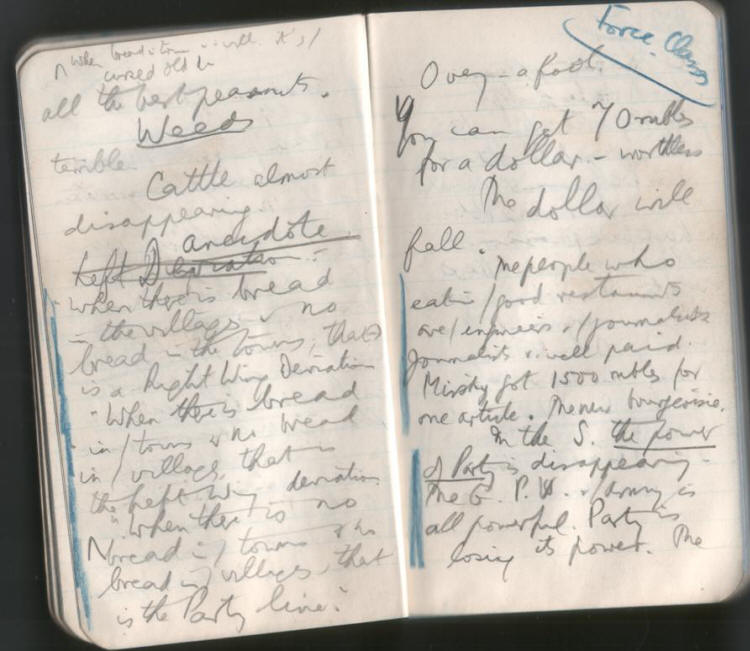 When bread
cursed old
all the best peasants.
Weeds
terrible
Cattle almost
disappearing.
anecdote
Left Deviation:
when there is bread
in the villages & no
bread in the towns, that
is a Right Wing Deviation
"When there is bread
in / towns & no bread
in / villages, that is
the Left Wing deviation
"when there is no
bread in / towns & no
bread in / villages, that
is the Party line."
Force. Classes
Ovey - a fool.
You can get 70 rubles
for a dollar. - worthless
The dollar will
fall.
The people who
eat in / good restaurants
are / engineers & / journalists
Journalists v. well paid.
Mirsky got 1500 rubles for
one article. The new bourgeoisie.
In the S. the power
of Party is disappearing -
The G.P.U. & / army is
all powerful. Party is
losing its power. The